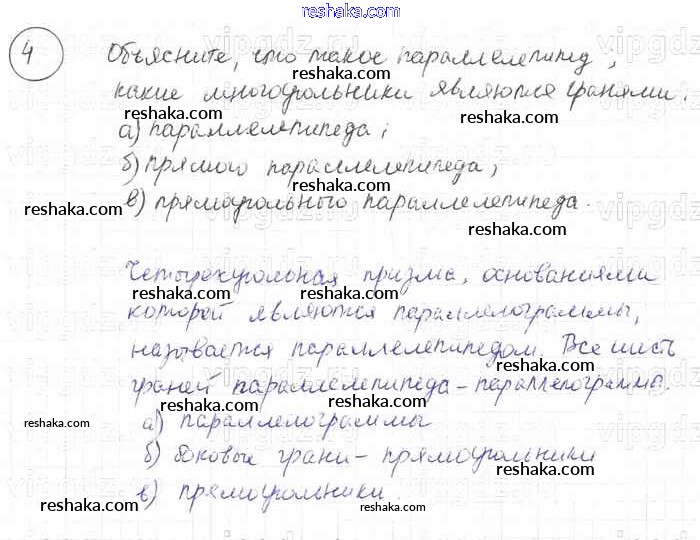 reshaka.com
4 Объясните, что такое параллелепипед,
reshaka.com
какие многоугольники являются гранями:
reshaka.com
а) параллелепипеда;
reshaka.com
б) прямого параллелепипеда,
reshaka.com
в) прямоугольного параллелепипеда.
reshaka.com
reshaka.com
Четырёхугольная призма, основаниями
reshaka.com reshaka.com
которой являются параллелограммы,
reshaka.com reshaka.com
называется параллелепипедом. Все шесть
reshaka.com
граней параллелепипеда – параллелограммы.
reshaka.com reshaka.com
а) параллелограммы
reshaka.com reshaka.com
б) боковые грани – прямоугольники
reshaka.com
в) прямоугольники.
reshaka.com reshaka.com
reshaka.com